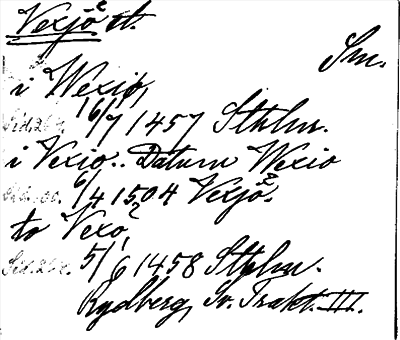 Vexjö st.
Sm.
i Wexio,
16/7 1457 Sthlm.
i Vexio.. Datum Wexio
6/4 1504 Vexjö.
to Vexo,
5/6 1458 Sthlm.
Rydberg, Sv. Trakt. III.